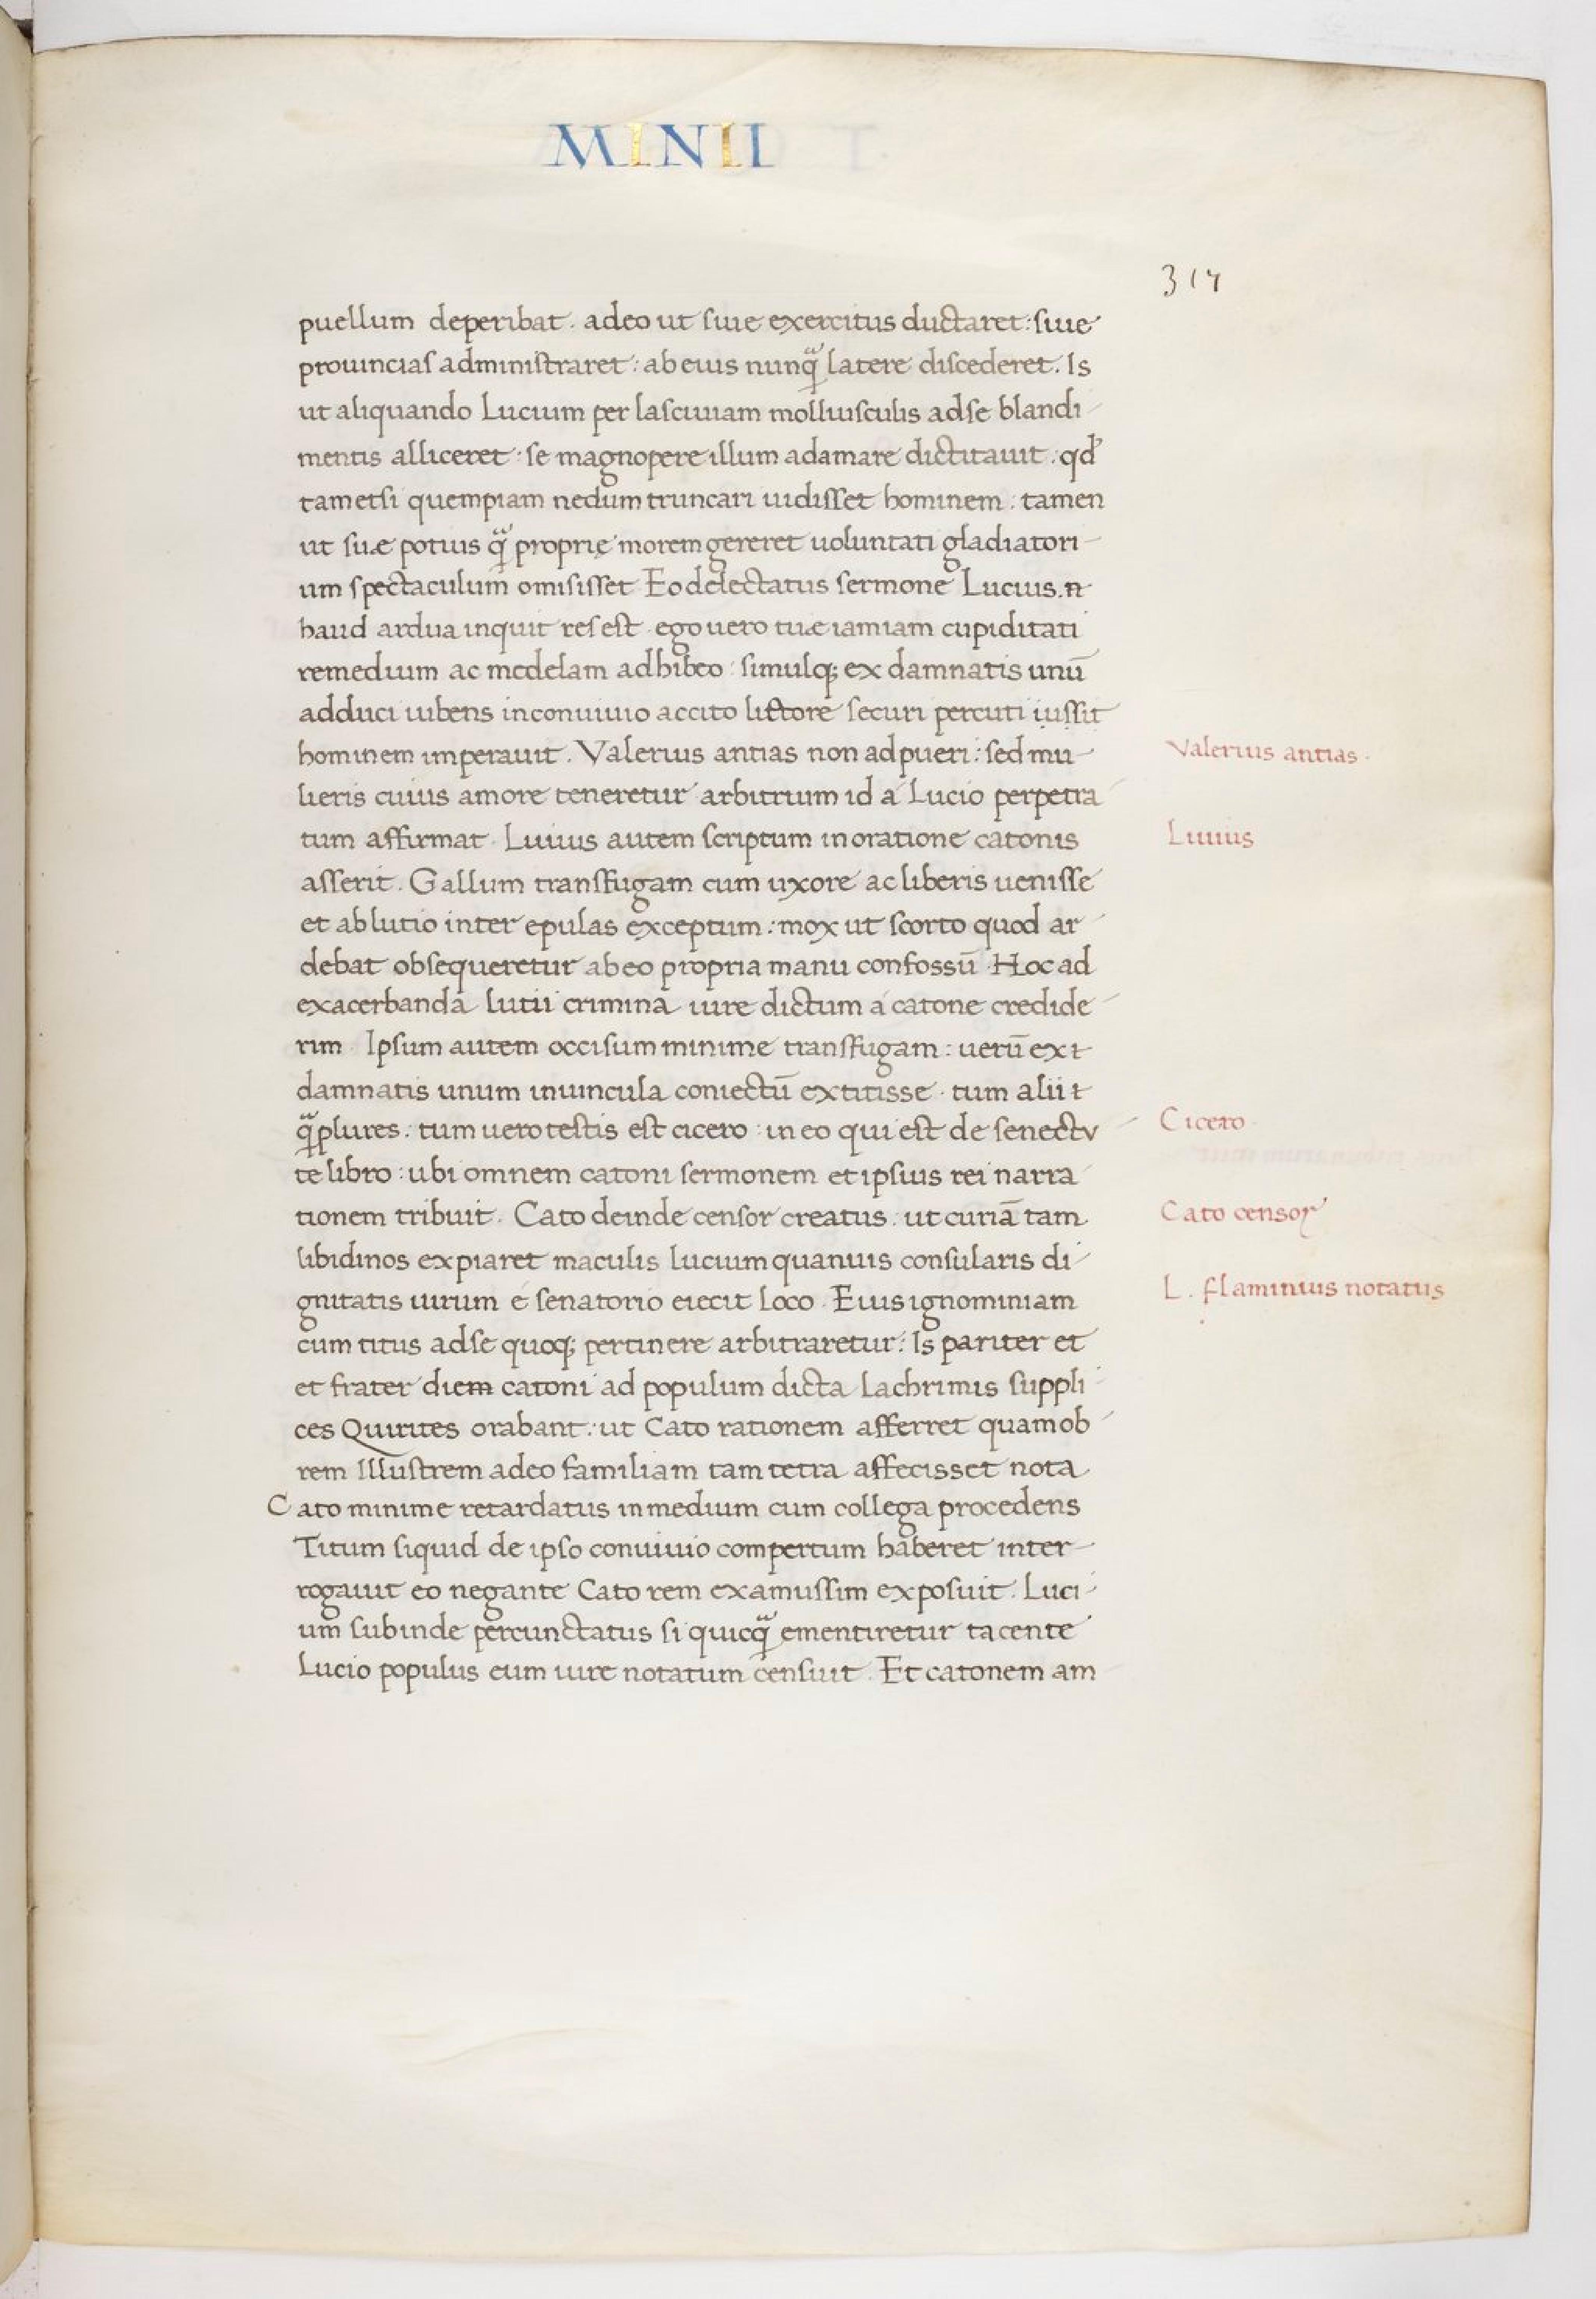 MINII
317
puellum deperibat. adeo ut siue exercitus ductaret: siue
prouincias administraret: ab eius nunq̃ latere discederet. Is
ut aliquando Lucium per lasciuiam molliusculis ad se blandi
mentis alliceret: se magnopere illum adamare dictitauit. qd̛
tametsi quempiam nedum truncari uidisset hominem: tamen
ut suæ potius q̃ proprię morem gereret uoluntati gladiatori
um spectaculum omisisset Eo delectatus sermone Lucius. n
haud ardua inquit res est ego uero tuæ iamiam cupiditati
remedium ac medelam adhibeo: simulq; ex damnatis unũ
adduci iubens in conuiuio accito lictore securi percuti iussit
hominem imperauit. Valerius antias non ad pueri: sed mu
Valerius antias.
lieris cuius amore teneretur arbitrium id a Lucio perpetra
tum affirmat. Liuius autem scriptum in oratione catonis
Liuius
asserit. Gallum transfugam cum uxore ac liberis uenisse
et ab lutio inter epulas exceptum: mox ut scorto quod ar
debat obsequeretur ab eo propria manu confossũ. Hoc ad
exacerbanda lutii crimina iure dictum a catone credide
rim Ipsum autem occisum minime transfugam: uerũ ex
damnatis unum in uincula coniectũ extitisse. tum alii
q̃plures: tum uero testis est cicero: in eo qui est de senectu
Cicero
te libro: ubi omnem catoni sermonem et ipsius rei narra
tionem tribuit. Cato deinde censor creatus. ut curiã tam
Cato censor
libidinos expiaret maculis lucium quanuis consularis di
gnitatis uirum e senatorio eiecit loco. Eius ignominiam
L. flaminius notatus
cum titus ad se quoq; pertinere arbitraretur: Is pariter et
et frater diem catoni ad populum dicta lachrimis suppli
ces Quirites orabant: ut Cato rationem afferret quamob
rem Illustrem adeo familiam tam tetra affecisset nota
Cato minime retardatus in medium cum collega procedens
Titum siquid de ipso conuiuio compertum haberet inter
rogauit eo negante Cato rem examussim exposuit. Luci
um subinde percunctatus si quicq̃ ementiretur tacente
Lucio populus eum iure notatum censuit. Et catonem am